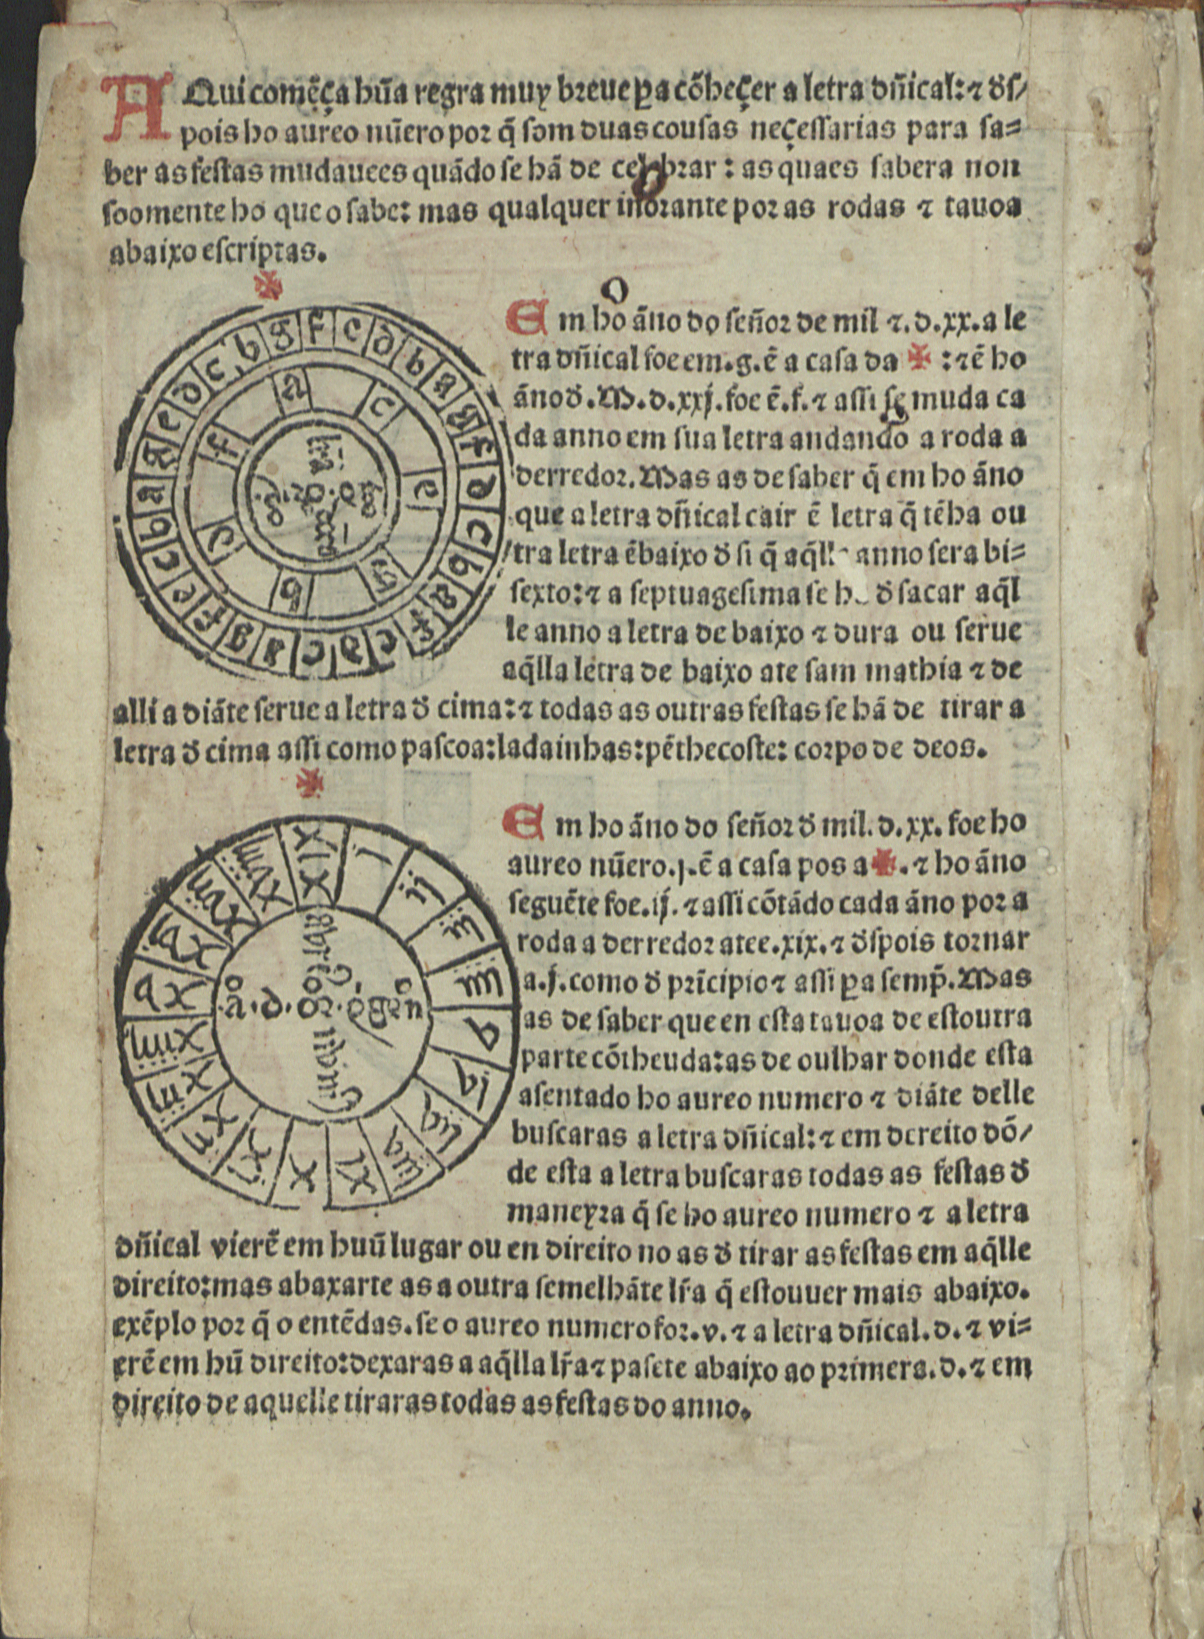 AQui comẽça hũa regra muy breue pa cõheçer a letra dñical: ⁊ ds/
pois ho aureo nũero por q̃ som duas cousas neçessarias para sa=
ber as festas mudauees quãdo se hã de celebrar : as quaes sabera non
soomente ho que o sabe: mas qualquer inorante por as rodas ⁊ tauoa
abaixo escriptas.
Em ho ãno do señor de mil ⁊.d.xx.a le
tra dñical foe em.g.ẽ a casa da ✠ : ⁊ ẽ ho
ãno d̃.M.d.xxj.foe ẽ.f.⁊ assi se muda ca
da anno em sua letra andando a roda a
derredor.Mas as de saber q̃ em ho ãno
que a letra dñical cair ẽ letra q̃ tẽha ou
/tra letra ẽbaixo d̃ si q̃ aq̃ll anno sera bi=
sexto: ⁊ a septuagesima se h d̃ sacar aq̃l
le anno a letra de baixo ⁊ dura ou serue
aq̃lla letra de baixo ate sam mathia ⁊ de
alli a diãte serue a letra d̃ cima: ⁊ todas as outras festas se hã de tirar a
letra d̃ cima assi como pascoa:ladainhas:pẽthecoste: corpo de deos.
g f e d b a g f d c b a f e d c a g f e c b a g e d c b
a c e g b d f
Em ho ãno do señor d̃ mil.d.xx.foe ho
aureo nũero.j.ẽ a casa pos a ✠.⁊ ho ãno
seguẽte foe.ij.⁊ assi cõtãdo cada ãno por a
roda a derredor atee.xix.⁊ d̃spois tornar
a.j.como d̃ prĩcipio ⁊ assi pa semp̃.Mas
as de saber que en esta tauoa de estoutra
parte cõtheuda:as de oulhar donde esta
asentado ho aureo numero ⁊ diãte delle
buscaras a letra dñical: ⁊ em dereito dõ/
de esta a letra buscaras todas as festas d̃
maneyra q̃ se ho aureo numero ⁊ a letra
dñical vierẽ em huũ lugar ou en direito no as d̃ tirar as festas em aq̃lle
direito:mas abaxarte as a outra semelhãte lr̃a q̃ estouuer mais abaixo.
exẽplo por q̃ o entẽdas.se o aureo numero for.v.⁊ a letra dñical.d.⁊ vi=
erẽ em hũ direito:dexaras a aq̃lla lr̃a ⁊ pasete abaixo ao primera.d.⁊ em
direito de aquelle tiraras todas as festas do anno.
XIX j ij iij iiij v vj vij viij ix x xj xij xiij xiiij xv xvj xvij xviij